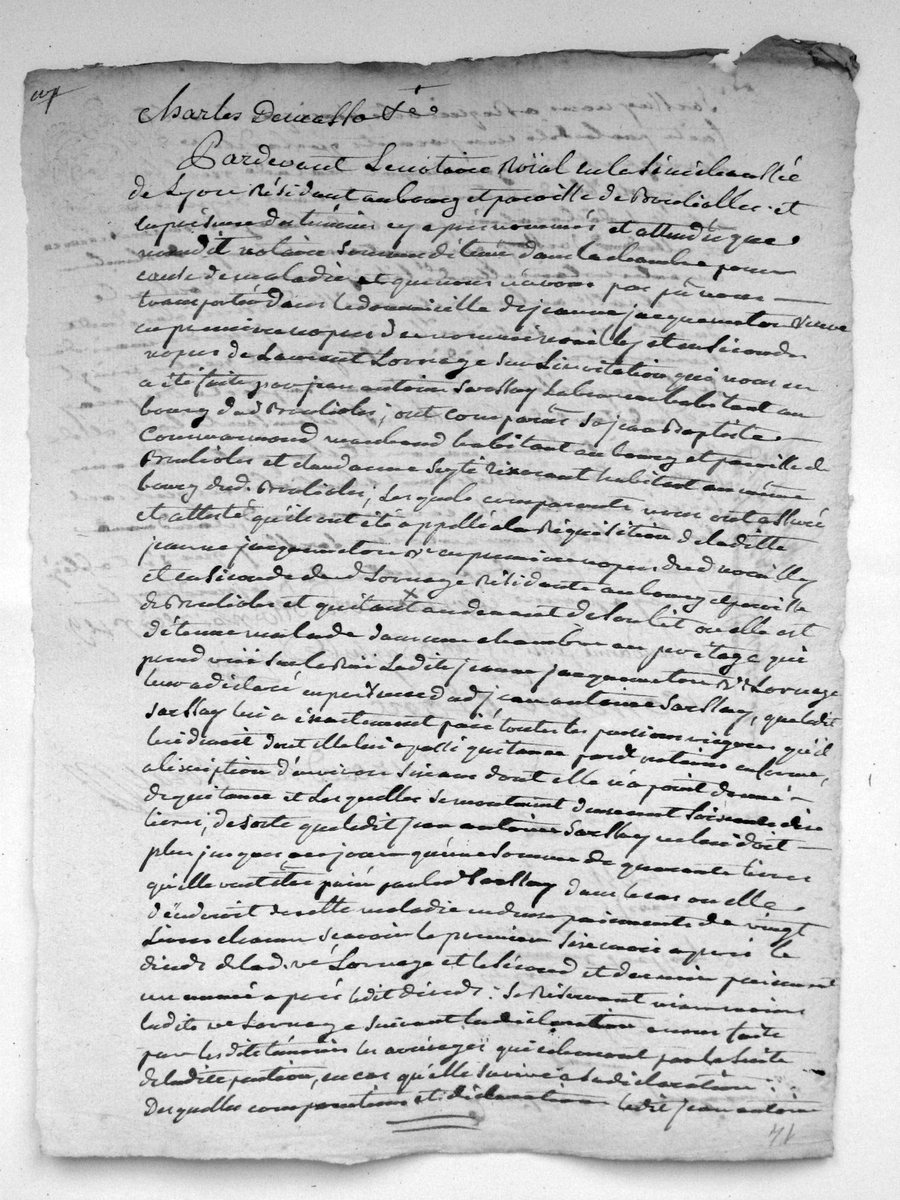 Charles Demasso &ce
Pardevant Le notaire Roial en la Sénéchaussée
de Lyon Résidant au bourg et paroisse de Brulliolles et
en présence des témoins cy après nommés et attendu que
ledit notaire détenu dans la chambre pour
cause de maladie et que nous
transporté dans le domicille de jeanne jacquemeton veuve
en première nopces de et en seconde
nopces de Laurent Lornage sur L'invitation qui nous en
a été faite par jean antoine Sarssay Laboureur habitant au
bourg dud Brulioles, ont comparus Sr jean Baptiste
Commarmond marchand habitant au bourg et paroisse de
Brulioles et claudanne habitant au même
bourg dud. Brulioles, Lesquels comparants nous ont assuré
et attesté qu'ils ont été appellé à la Réquisition de laditte
jeanne jacquemeton ve en première nopces dud
et en seconde dud Lornage Résidante au bourg et paroisse
de Brulioles et qu'étant au devant de son lit ou elle est
détenue malade dans une chambre au per étage qui
prend vüe sur la Rue Ladite jeanne jacquemeton ve Lornage
leur a déclaré en présence dud jean antoine Sarssay, que ledit
Sarssay lui a exactement païé toutes les pansions viageres qu'il
lui devoit dont elle lui a passé quitance pardt notaires en forme,
a l'exception d'environ six ans dont elle n'a point donné
de quitance et Lesquelles se montent à soixante dix
livres, de sorte que ledit jean antoine Sarssay ne lui doit
plus jusques a ce jour qu'une somme de quarante livres
qu'elle veut être païée par led Sarssay dans le cas ou elle
décéderoit de cette maladie en deux paiments de vingt
Livres chacun scavoir le premier six mois après le
décès de lad. ve Lornage et le second et dernier paiement
une année après ledit décès: se Réservant néanmoins
ladite ve Lornage suivant la déclaration a nous faite
par les dits témoins les arrérages qui echeront par la Suite
de ladite pention, en cas qu'elle survive a sa déclaration:
Desquelles comparutions et déclarations ledit jean antoine